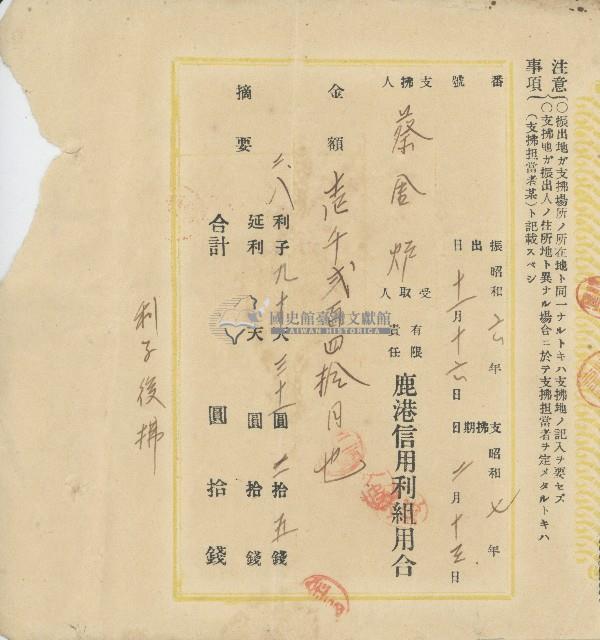 注意
事項
〇振出地ガ支拂場所ノ所在地ト同一ナルトキハ支拂地ノ記入ヲ要セズ
〇支拂地ガ振出人ノ住所地ト異ナル場合ニ於テ支拂担當者ヲ定メタルトキハ
（支拂担當者某）ト記載スベシ
番號
振出日 昭和六年十一月十六日
支拂期日 昭和七年二月十三日
支拂人 蔡
受取人 有限責任 鹿港信用利組用合
金額 壱千弐百四拾円也
摘要
利子
圓 拾 五 錢
延利 天 圓 拾 錢
合計 圓 拾 錢
利子後拂
國史館臺灣文獻館
TAIWAN HISTORICA